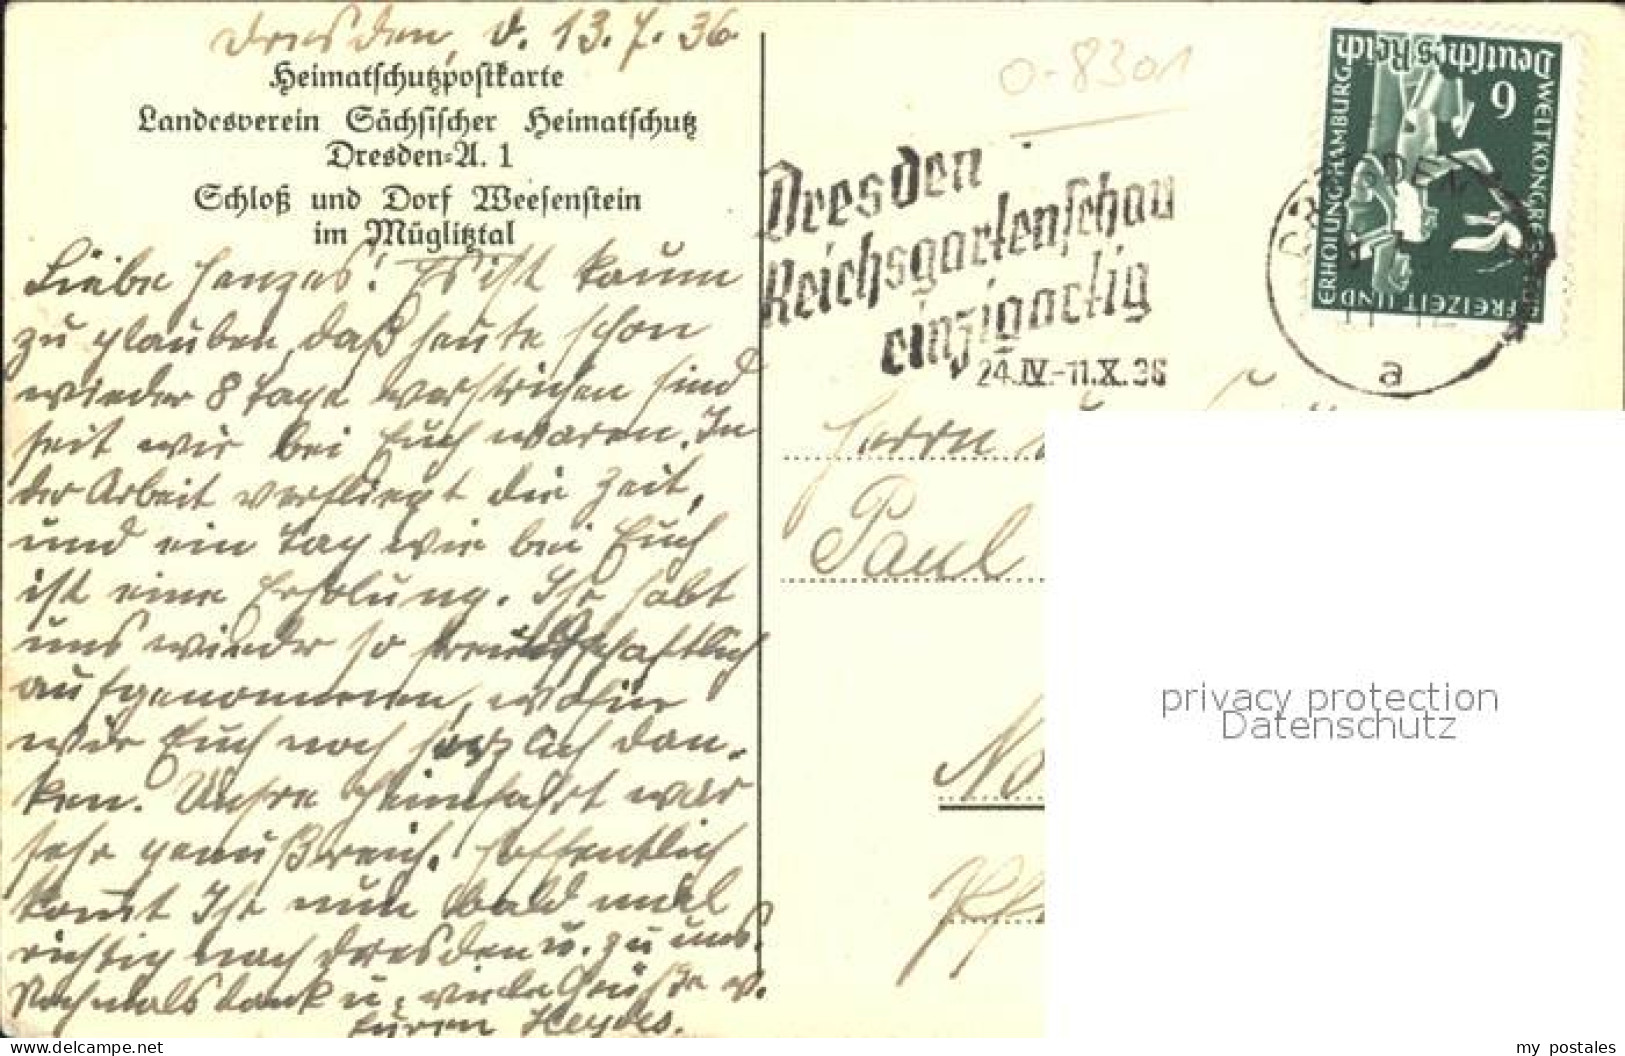 Dresden, d. 13.7.36
Heimatschutzpostkarte
Landesverein Sächsischer Heimatschutz
Dresden-A. 1
Schloß und Dorf Weesenstein
im Müglitztal
Liebe Henzes! Es ist kaum
zu glauben, daß heute schon
wieder 8 Tage verstrichen sind
seit wir bei Euch waren. In
der Arbeit verfliegt die Zeit,
und ein Tag wie bei Euch
ist eine Erholung. Ihr habt
uns wieder so freundschaftlich
aufgenommen, wofür
wir Euch noch herzlich dan-
ken. Unsre Heimfahrt war
sehr genußreich. Hoffentlich
kommt Ihr nun bald mal
richtig nach Dresden u. zu uns.
Nochmals Dank u. viele Grüße v.
Euren Heydes.
0-8301
Dresden
Reichsgartenschau
einzigartig
24.IV.-11.X.36
DRESDEN
a
Deutsches Reich
6
WELTKONGRESS FÜR
FREIZEIT UND
ERHOLUNG HAMBURG
Herrn
Paul
No
privacy protection
Datenschutz
www.delcampe.net
my_postales